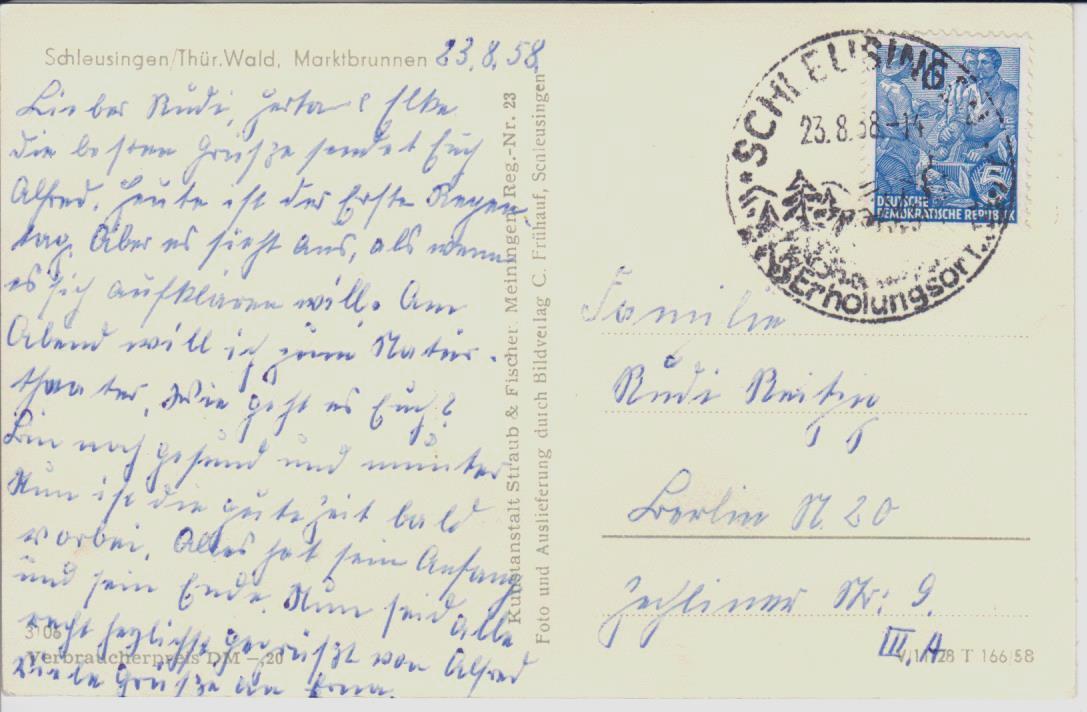 Schleusingen/Thür. Wald, Marktbrunnen 23.8.58
Lieber Rudi, Herta & Elke
die besten Grüße sendet Euch
Alfred. Heute ist der Erste Regen-
tag. Aber es sieht aus, als wenn
es sich aufklaren will. Am
Abend will ich zum Natur-
theater. Wie geht es Euch?
Bin noch gesund und munter
Nun ist die gute Zeit bald
vorbei. Alles hat sein Anfang
und sein Ende. Nun seid alle
recht herzlichst gegrüßt von Alfred
Viele Grüße an Erna.
3106
Verbraucherpreis DM –,20
Kunstanstalt Straub & Fischer Meiningen Reg.-Nr. 23
Foto und Auslieferung durch Bildverlag C. Frühauf, Schleusingen
SCHLEUSINGEN
23.8.58-14
Erholungsort
DEUTSCHE
DEMOKRATISCHE REPUBLIK
Familie
Rudi
Berlin N 20
Zechliner Str: 9.
III, A
V/11/28 T 166/58